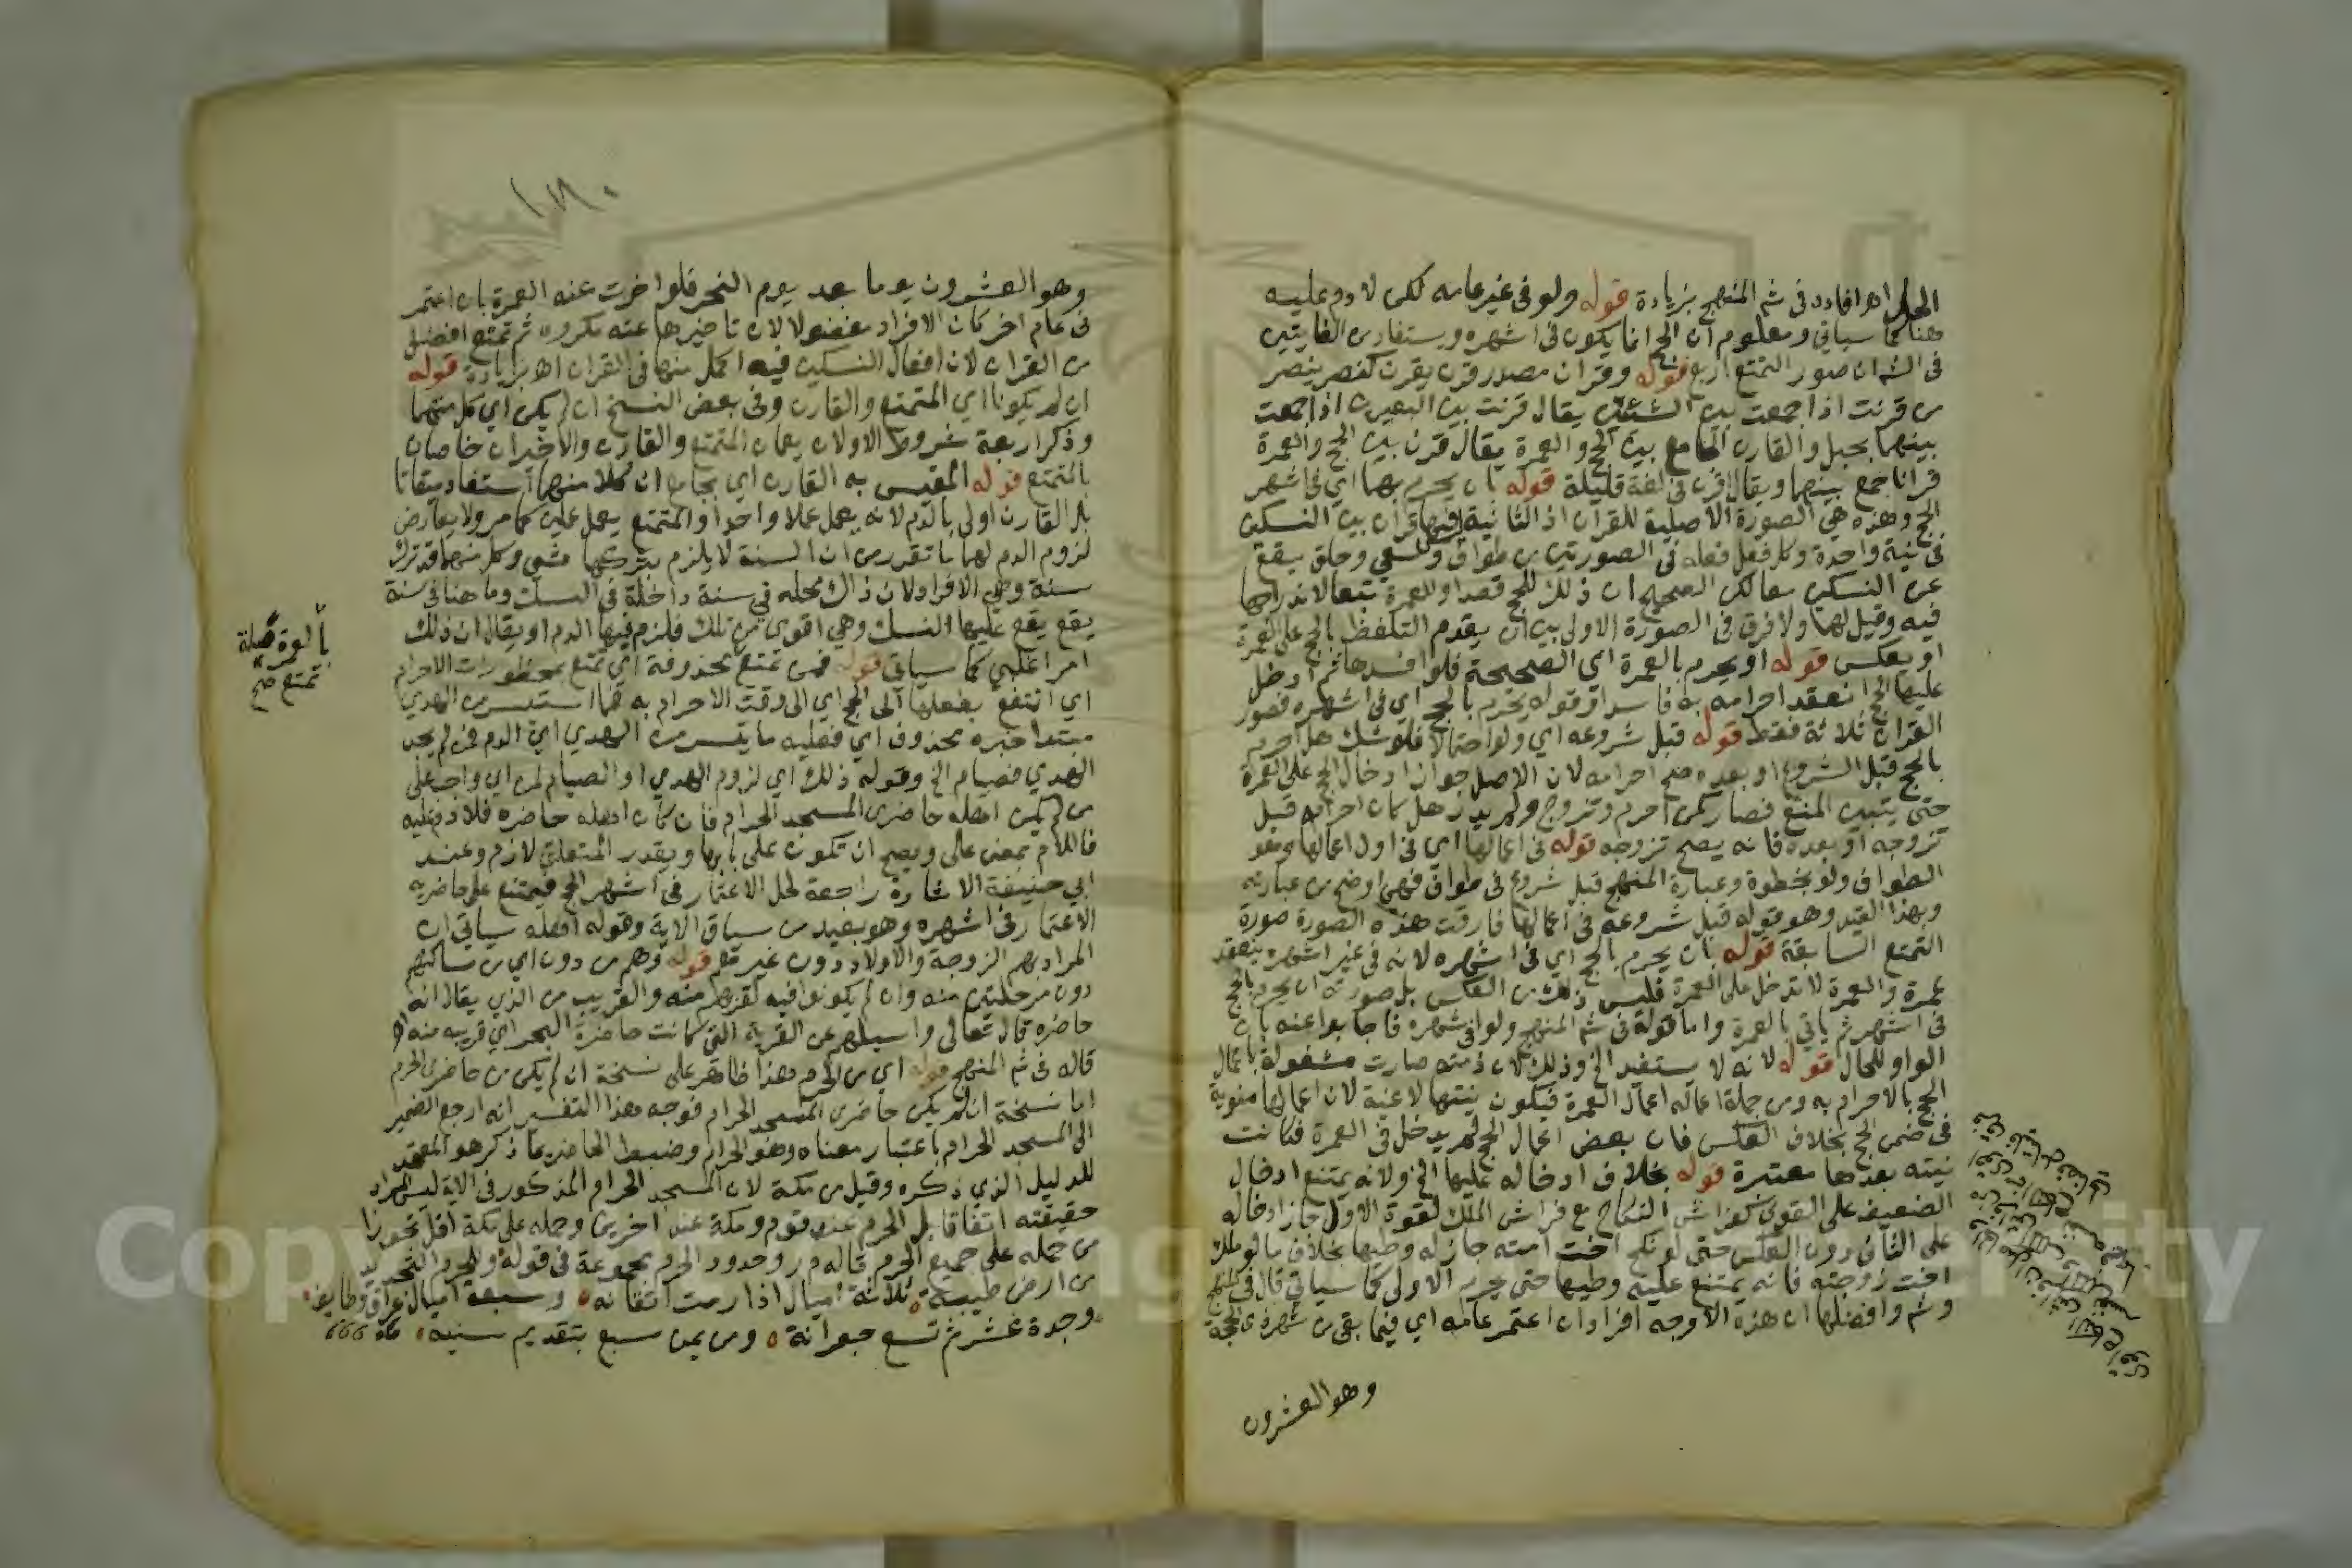 الحل اهـ افاده فى شم المنهج بزيادة قوله ولو فى غير عامه لكن لا دم عليه
هنا كما سياتي ومعلوم ان الحج انما يكون فى اشهره ويستفاد من الغايتين
فى الش ان صور التمتع اربع قوله وقران مصدر قرن يقرن كنصر ينصر
من قرنت اذا جمعت بين الشيئين يقال قرنت بين البعيرين اذا جمعت
بينهما بحبل والقارن الجامع بين الحج والعمرة يقال قرن بين الحج والعمرة
قرانا جمع بينهما ويقال اقرن فى لغة قليلة قوله بان يحرم بهما اي فى اشهر
الحج وهذه هي الصورة الاصلية للقران اذ الثانية فيها قران بين النسكين
فى نية واحدة وكل فعل فعله فى الصورتين من طواف وسعي وحلق يقع
عن النسكين معا لكن الصحيح ان ذلك للحج قصدا وللعمرة تبعا لاندراجها
فيه وقيل لهما ولا فرق فى الصورة الاولى بين ان يقدم التلفظ بالحج على العمرة
او يعكس قوله او يحرم بالعمرة اي الصحيحة فلو افسدها ثم ادخل
عليها الحج انعقد احرامه به فاسدا وقوله يحرم بالحج اي فى اشهره فصور
القران ثلاثة فقط قوله قبل شروعه اي ولو احتمالا فلو شك هل احرم
بالحج قبل الشروع او بعده صح احرامه لان الاصل جواز ادخال الحج على العمرة
حتى يتبين المنع فصار كمن احرم وتزوج ولم يدر هل كان احرامه قبل
تزوجه او بعده فانه يصح تزوجه قوله فى اعمالها اي فى اول اعمالها وهو
الطواف ولو بخطوة وعبارة المنهج قبل شروع فى طواف فهي اوضح من عبارته
وبهذا القيد وهو قوله قبل شروعه فى اعمالها فارقت هذه الصورة صورة
التمتع السابقة قوله بان يحرم بالحج اي فى اشهره لانه فى غير اشهره ينعقد
عمرة والعمرة لا تدخل على العمرة فليس ذلك من العكس بل صورته ان يحرم بالحج
فى اشهره ثم ياتي بالعمرة واما قوله فى شم المنهج ولو فى اشهره فاجابوا عنه بان
الواو للحال قوله لانه لا يستفيد الخ وذلك لان ذمته صارت مشغولة باعمال
الحج بالاحرام به ومن جملة اعماله اعمال العمرة فيكون نيتها لاغية لان اعمالها منوية
فى ضمن الحج بخلاف العكس فان بعض اعمال الحج لم يدخل فى العمرة فكانت
نيته بعدها معتبرة قوله بخلاف ادخاله عليها الخ ولانه يمتنع ادخال
الضعيف على القوي كفراش النكاح مع فراش الملك لقوة الاول جاز ادخاله
على الثانى دون العكس حتى لو نكح اخت امته جاز له وطيها بخلاف ما لو ملك
اخت زوجته فانه يمتنع عليه وطيها حتى يحرم الاولى كما سياتي قال فى المنهج
وشم وافضلها ان هذه الاوجه افراد ان اعتمر عامه اي فيما بقى من شهر ذى الحجة
وهو العشرون
وهو العشرون يوما بعد يوم النحر فلو اخرت عنه العمرة بان اعتمر
فى عام اخر كان الافراد مفضولا لان تاخيرها عنه مكروه ثم تمتع افضل
من القران لان افعال النسكين فيه اكمل منها فى القران اهـ بزيادة قوله
ان لم يكونا اي المتمتع والقارن وفى بعض النسخ ان لم يكن اي كل منهما
وذكر اربعة شروط الاولان يعمان المتمتع والقارن والاخيران خاصان
بالمتمتع قوله المقيس به القارن اي بجامع ان كلا منهما استفاد ميقاتا
بل القارن اولى بالدم لانه يعمل عملا واحدا والمتمتع يعمل عملين كما مر ولا يعارض
لزوم الدم لهما ما تقرر من ان السنة لا يلزم بتركها شي وكل منهما قد ترك
سنة وهي الافراد لان ذاك محله في سنة داخلة فى النسك وما هنا فى سنة
يقع يقع عليها النسك وهي اقوى من تلك فلزم فيها الدم او يقال ان ذلك
امر اغلبي كما سياتي قوله فمن تمتع بحذوفة اي تمتع بمحظورات الاحرام
بالعمرة صلة
تمتع صح
اي انتفع بفعلها الى الحج اي الى وقت الاحرام به فما استيسر من الهدي
مبتدا خبره محذوف اي فعليه ما تيسر من الهدي اي الدم فمن لم يجد
الهدي فصيام الخ وقوله ذلك اي لزوم الهدي او الصيام لمن اي واجب على
من لم يكن اهله حاضرى المسجد الحرام فان كان اهله حاضره فلا دم عليه
فاللام بمعنى على ويصح ان تكون على بابها ويقدر المتعلق لازم وعند
ابي حنيفة الاشارة راجعة لحل الاعتمار فى اشهر الحج فيمتنع على حاضريه
الاعتمار فى اشهره وهو بعيد من سياق الاية وقوله اهله سياتي ان
المراد بهم الزوجة والاولاد دون غيرهم قوله وهم من دون اي من مساكنهم
دون مرحلتين منه وان لم يكونوا فيه لقربهم منه والقريب من الذي يقال انه
حاضره قال تعالى واسيلهم عن القرية التى كانت حاضرة البحر اي قريبه منه اهـ
قاله فى شم المنهج قوله اي من الحرم هذا ظاهر على نسخة ان لم يكن من حاضرى الحرم
اما نسخة ان لم يكن حاضرى المسجد الحرام فوجه هذا التفسير انه ارجع الضمير
الى المسجد الحرام باعتبار معناه وهو الحرام وضبط الحاضر بما ذكر هو المعتمد
للدليل الذي ذكره وقيل من مكة لان المسجد الحرام المذكور فى الاية ليس المراد
حقيقته اتفاقا بل الحرم عند قوم ومكة عند اخرين وحمله على مكة اقل تجوزا
من حمله على جميع الحرم قاله م ر وحدود الحرم مجموعة فى قوله وللحرم التحديد
من ارض طيبة ثلاثة اميال اذا رمت اتقانه وسبعة اميال عراق وطايف
وجدة عشر ثم تسع جعرانة ومن يمن سبع بتقديم سينه